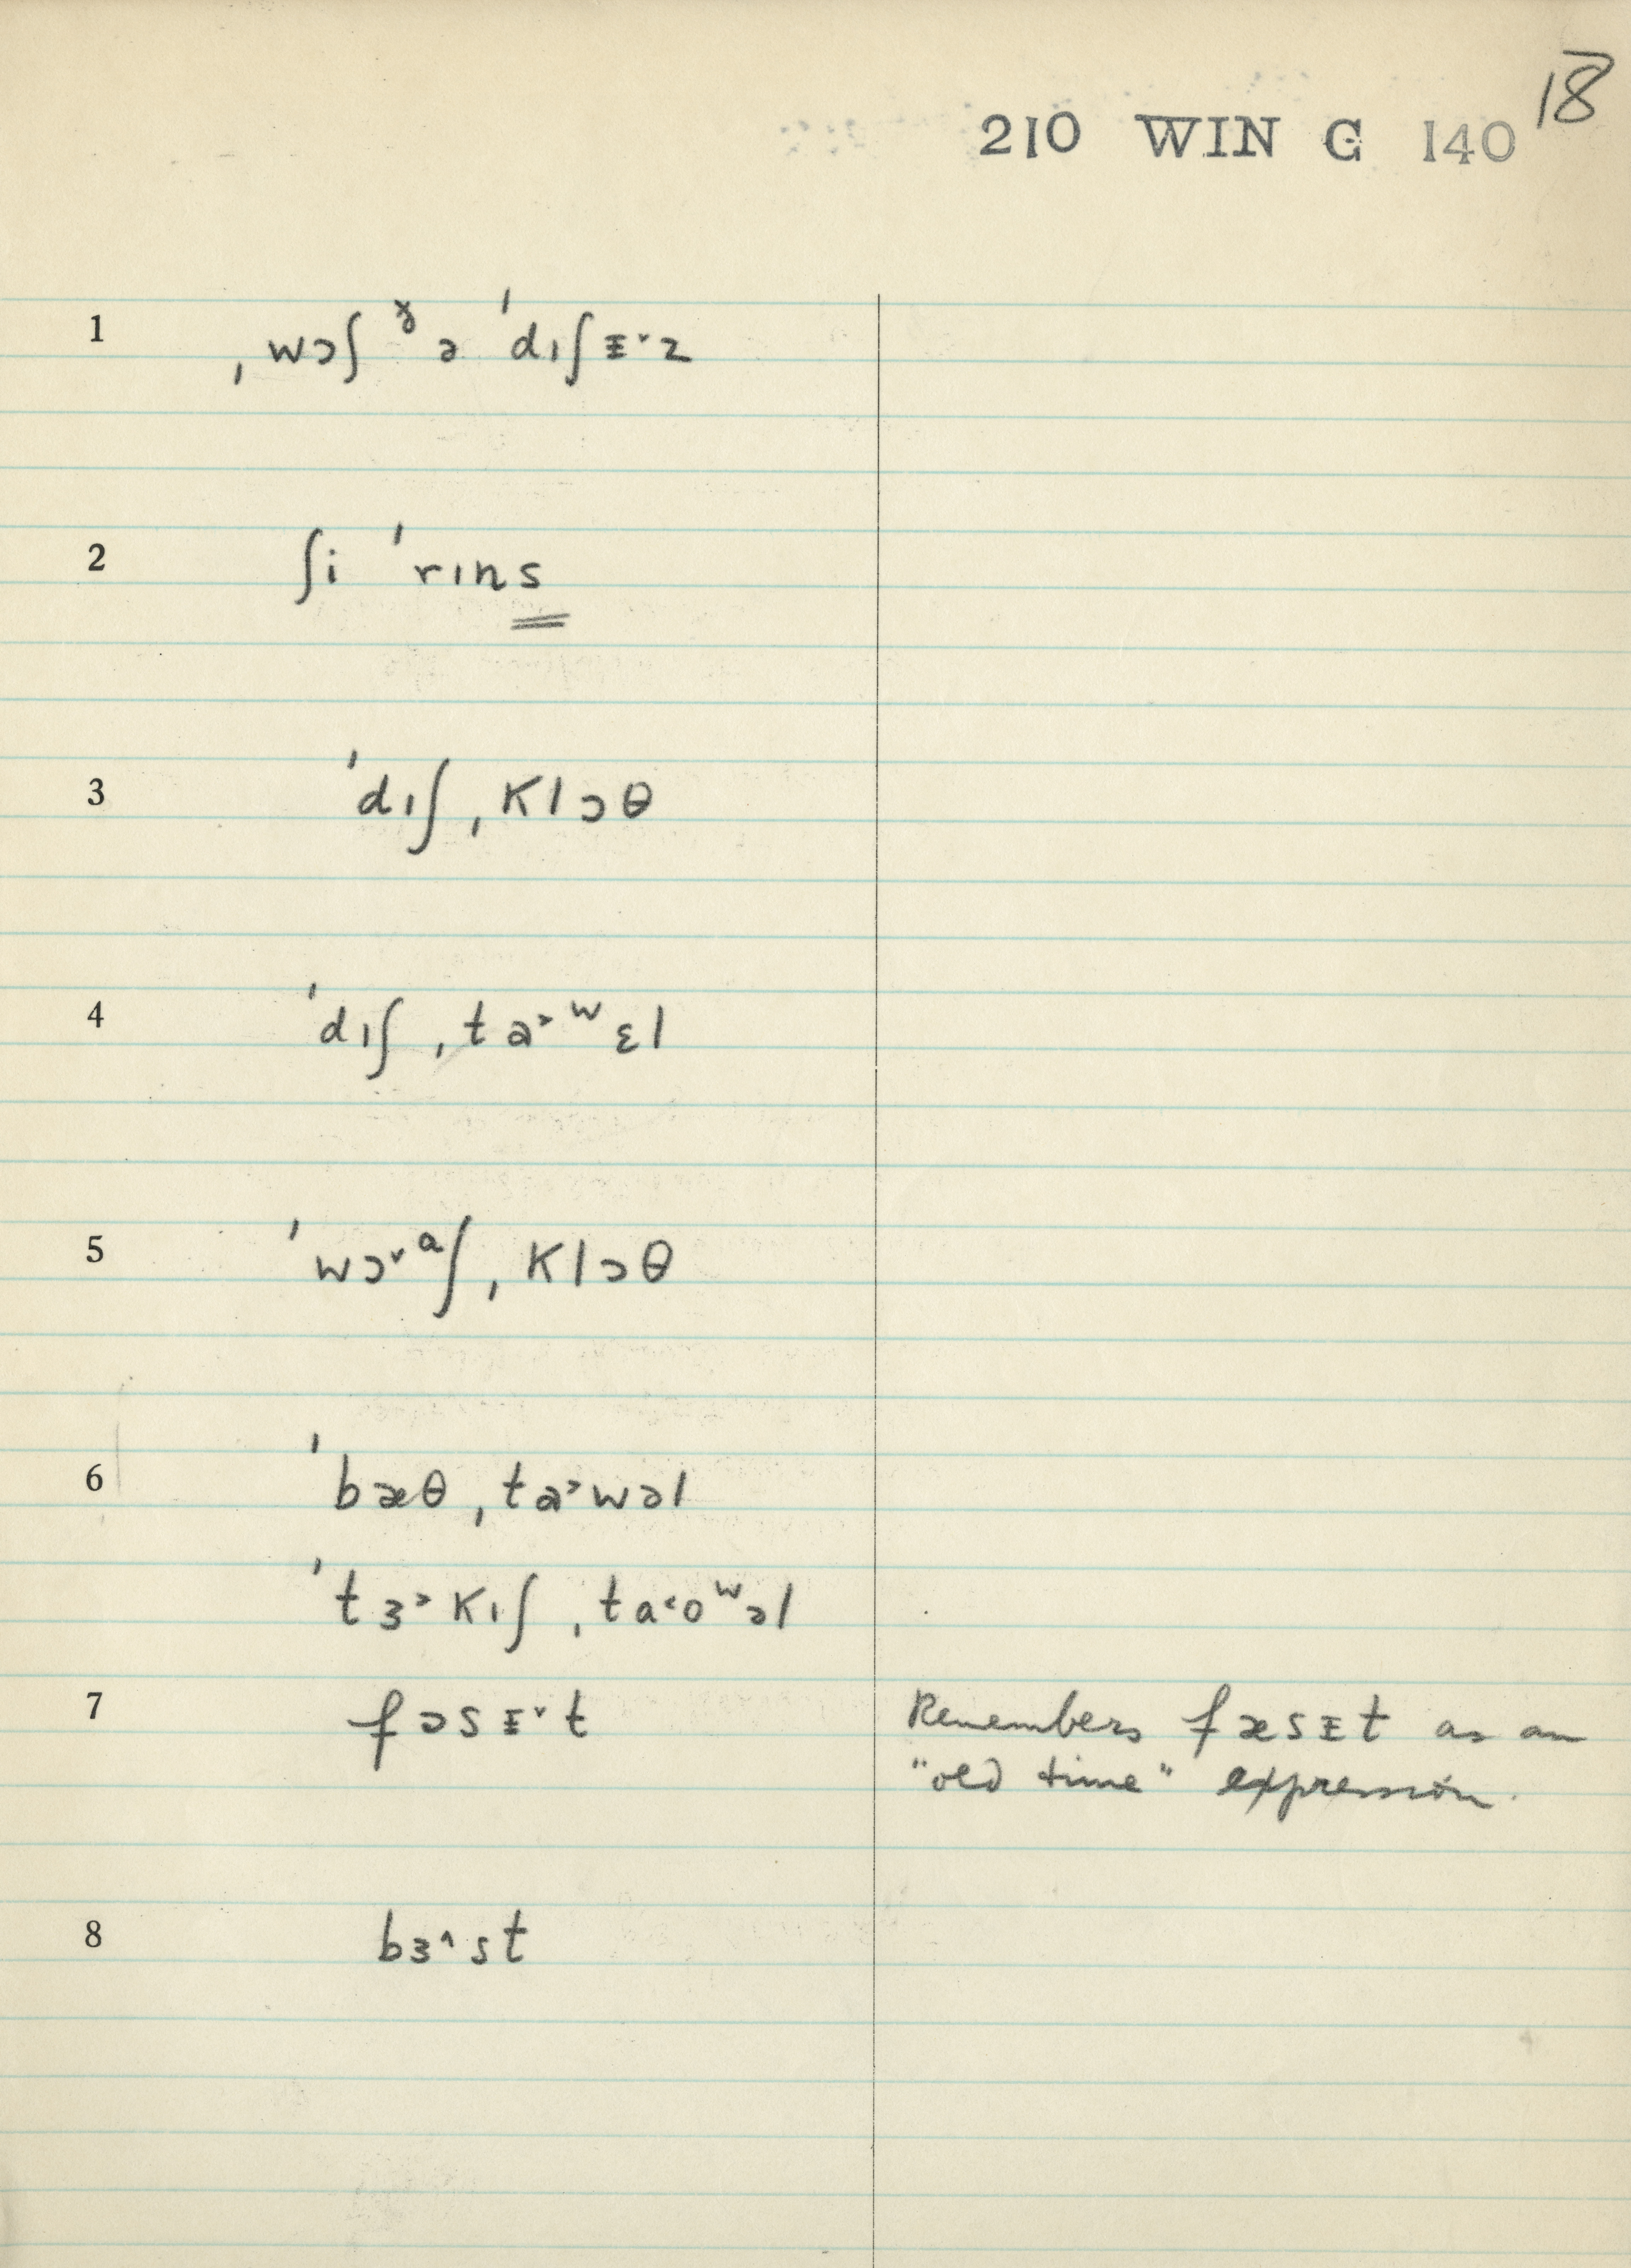 18
210 WIN G 140
1 ˌwɔʃ ᵊ̌ ə ˈdɪʃɪ̵˅z
2 ʃi ˈrɪns
3 ˈdɪʃˌklɔθ
4 ˈdɪʃˌta˃ʷɛl
5 ˈwɔ˅ᵃʃˌklɔθ
6 ˈbæθˌta˃wəl
ˈtɜ˃kɪʃˌta˂oʷəl
7 fɔsɪ̵˅t Remembers fæsɪ̵t as an
"old time" expression.
8 bɜ˄st